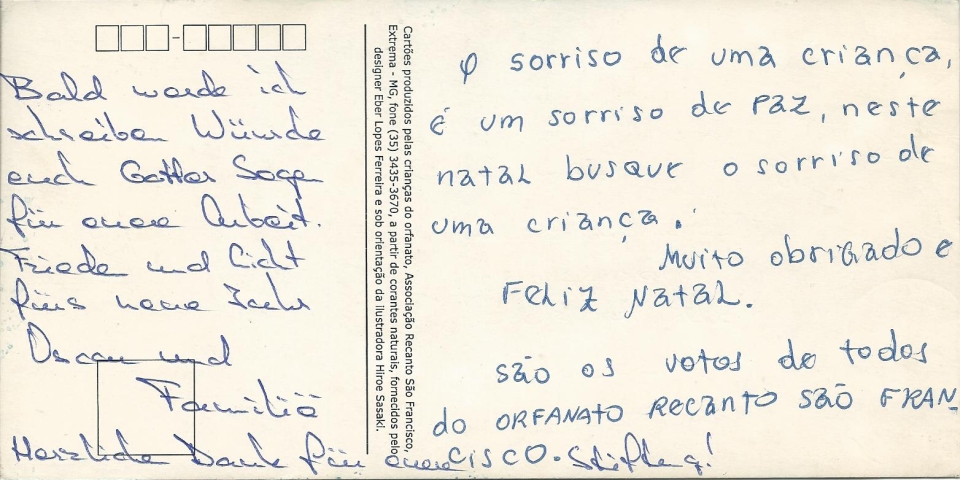 Bald werde ich
schreiben Wünsche
euch Gottes Segen
für euere Arbeit.
Friede und Licht
fürs neue Jahr
Oscar und
Familie
Herzliche Dank für euere Stiftung!
Cartões produzidos pelas crianças do orfanato, Associação Recanto São Francisco,
Extrema - MG, fone (35) 3435-3670, a partir de corantes naturais, fornecidos pelo
designer Eber Lopes Ferreira e sob orientação da ilustradora Hiroe Sasaki.
O sorriso de uma criança,
é um sorriso de PAZ, neste
natal busque o sorriso de
uma criança.
Muito obrigado e
Feliz Natal.
são os votos de todos
do ORFANATO RECANTO SÃO FRAN
CISCO.